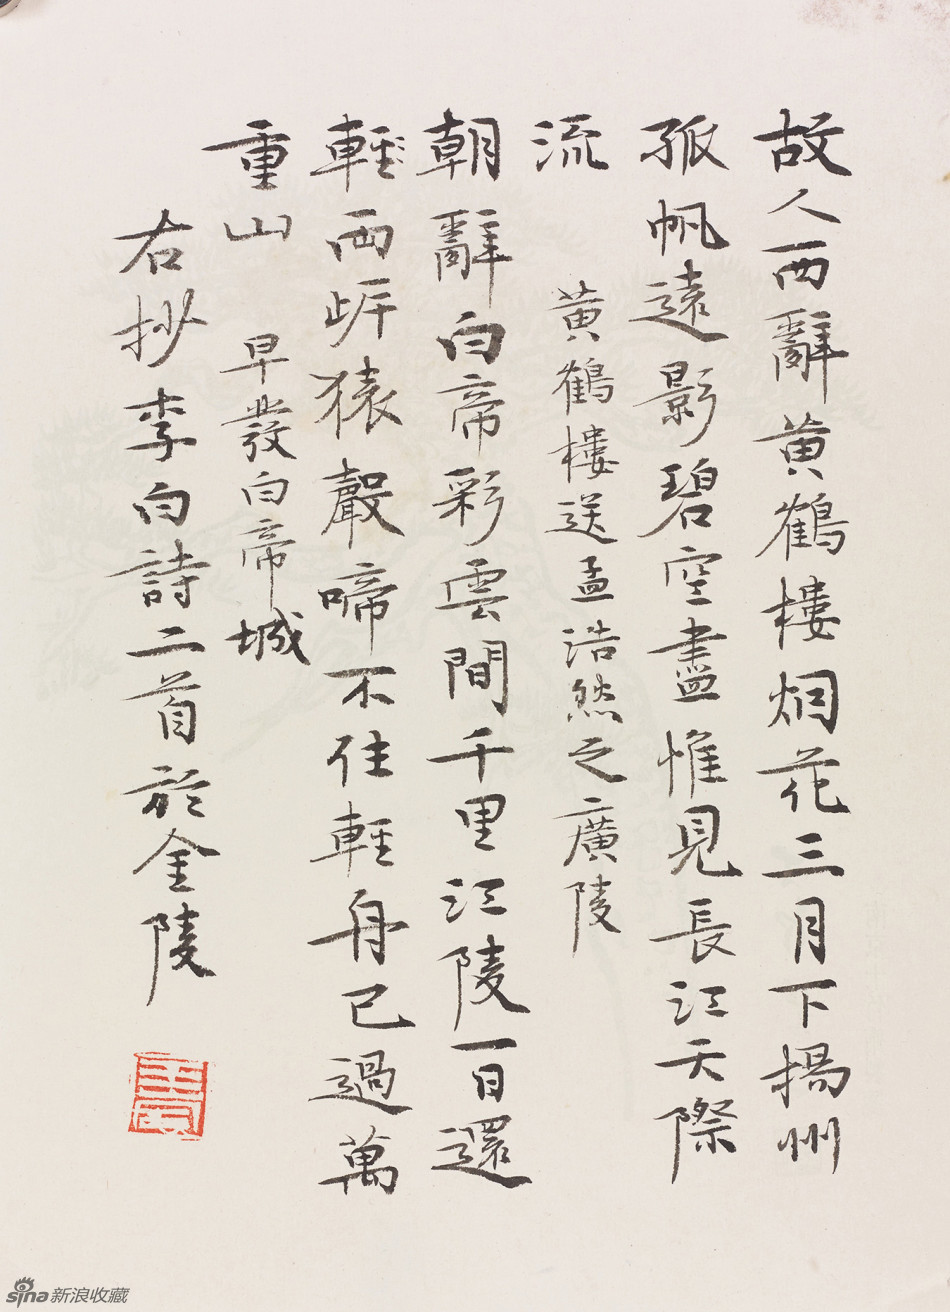 故人西辭黄鶴樓烟花三月下揚州
孤帆遠影碧空盡惟見長江天際
流 黄鶴樓送孟浩然之廣陵
朝辭白帝彩雲間千里江陵一日還
輕兩岸猿聲啼不住輕舟已過萬
重山 早發白帝城
右抄李白詩二首於金陵
sina新浪收藏